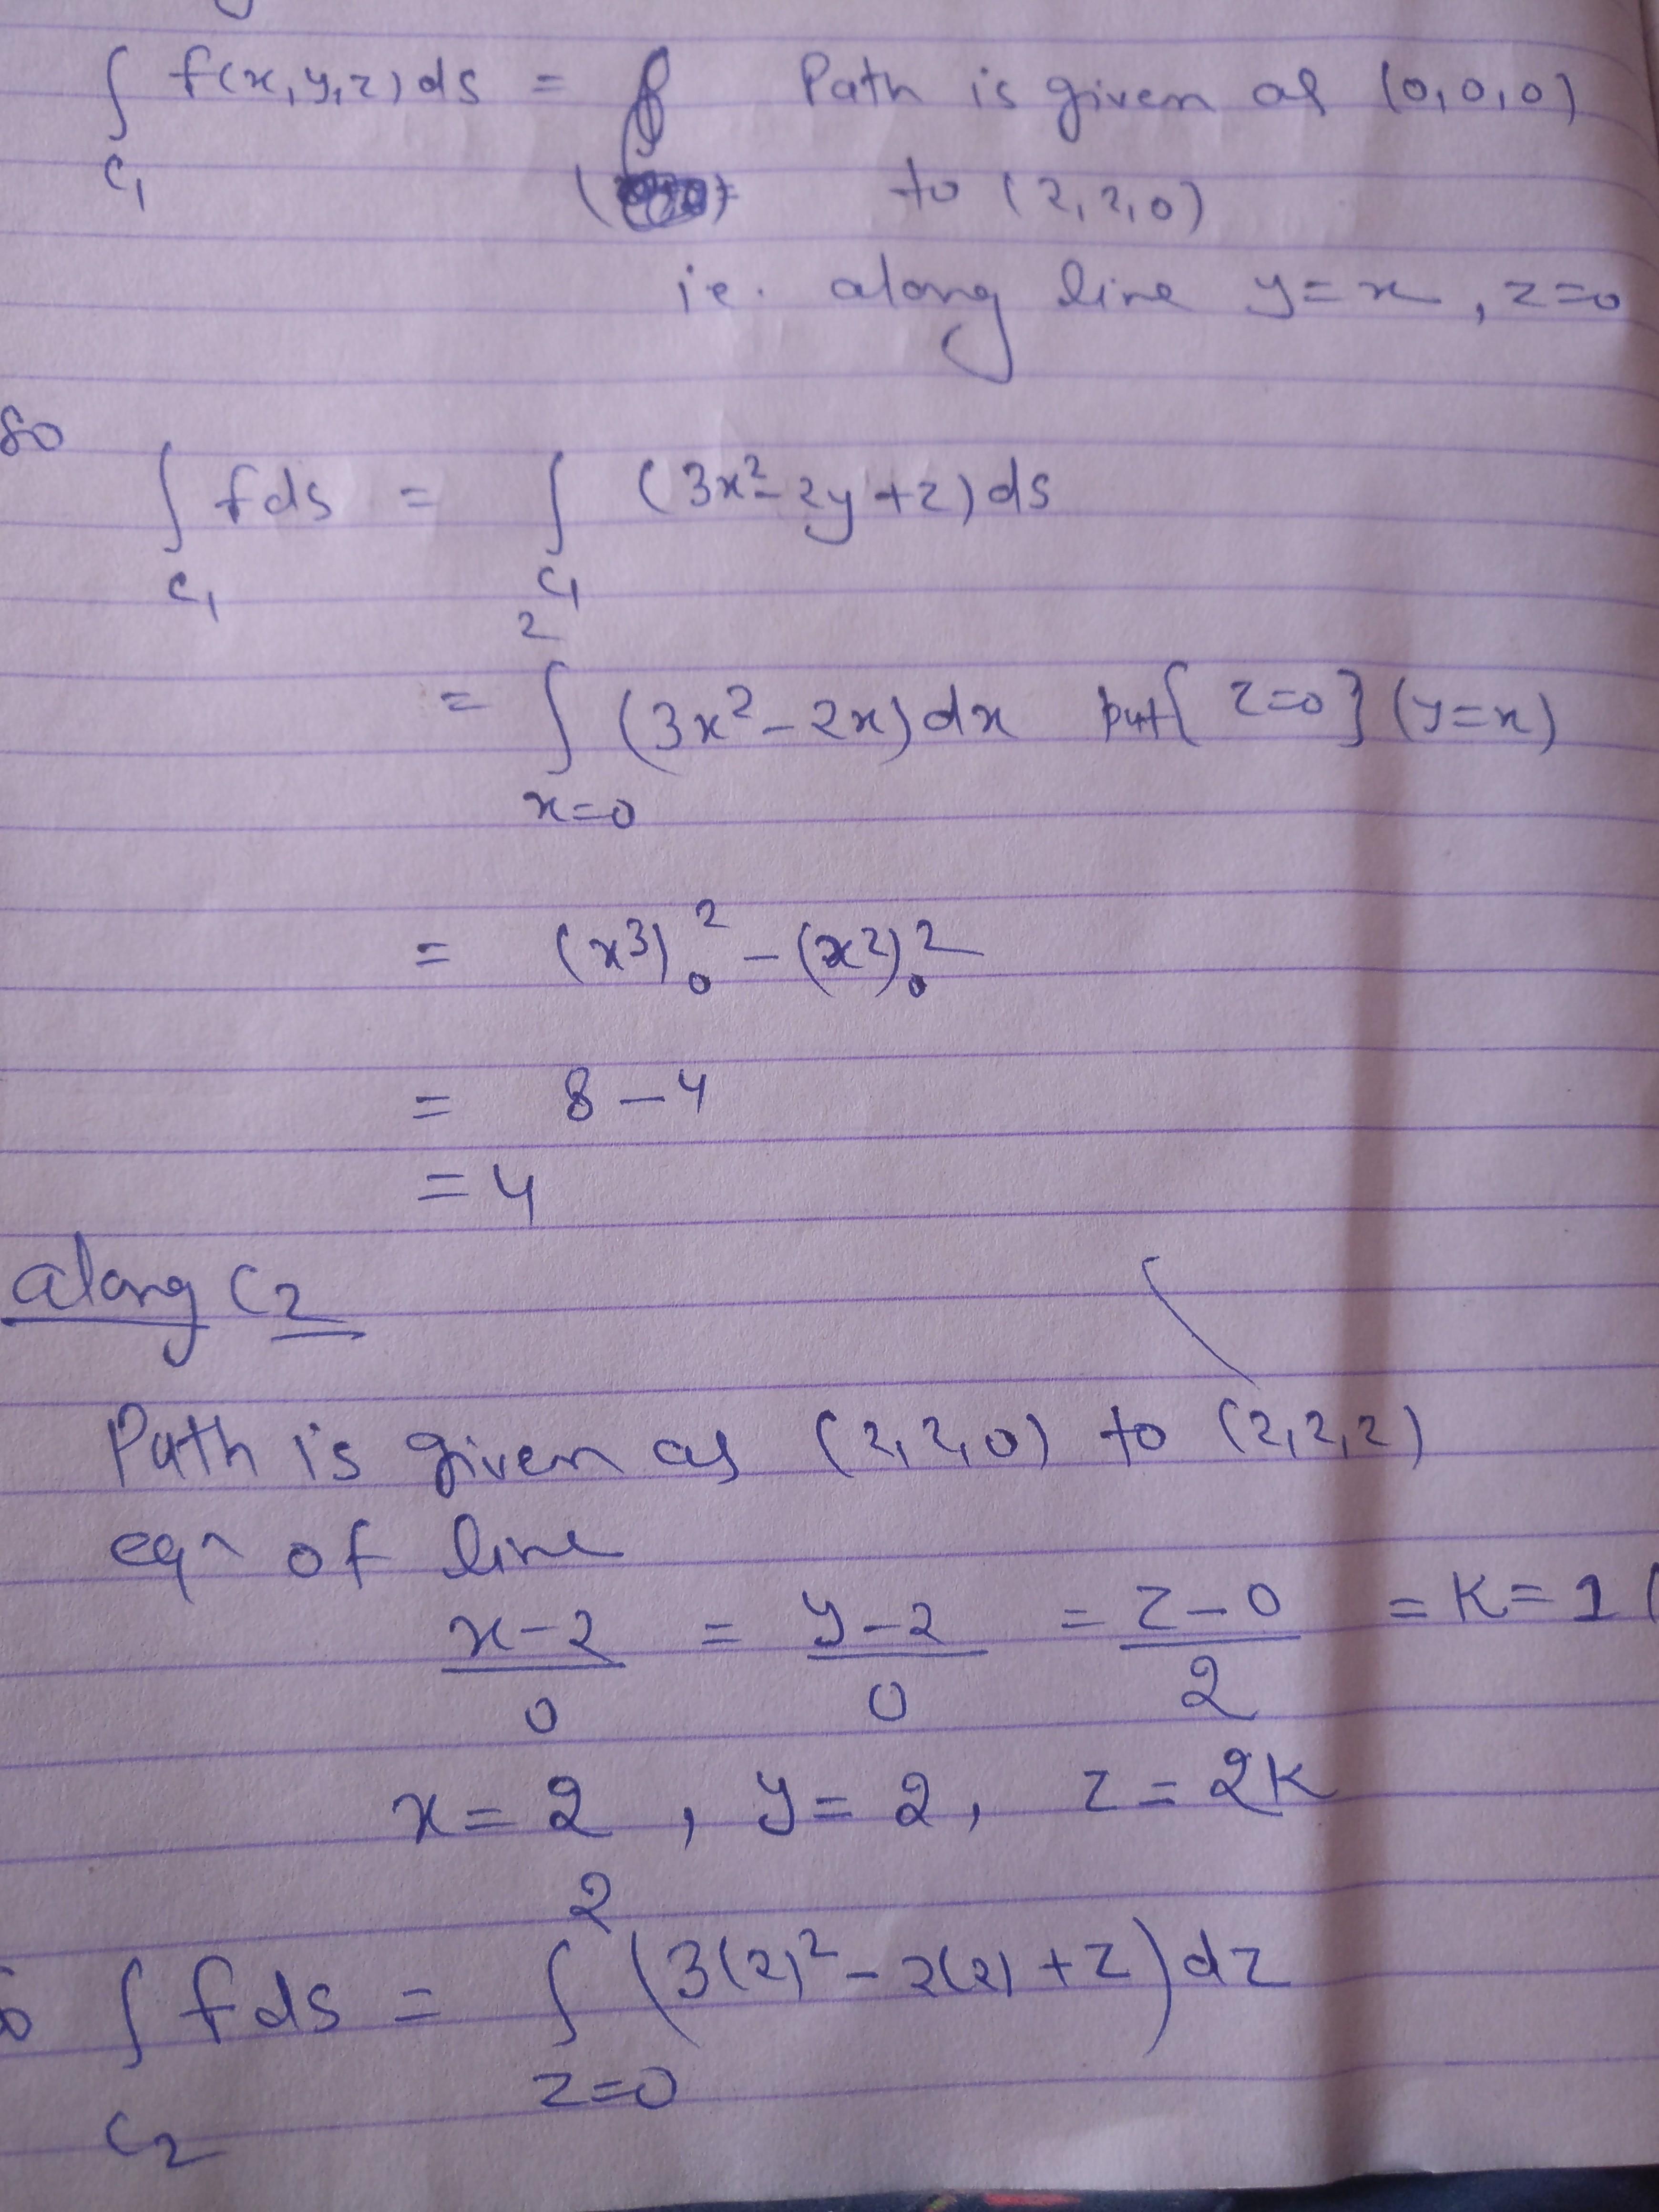 ∫ f(x,y,z) ds = Path is given as (0,0,0)
C₁
to (2,2,0)
i.e. along line y=x, z=0
So
∫ f ds = ∫ (3x²-2y+z) ds
C₁ C₁
2
= ∫ (3x²-2x) dx put{z=0} (y=x)
x=0
= (x³)₀² - (x²)₀²
= 8-4
= 4
along C₂
Path is given as (2,2,0) to (2,2,2)
eqn of line
x-2 = y-2 = z-0 = K=1 (
0 0 2
x=2, y=2, z=2K
2
∫ f ds = ∫ (3(2)²-2(2)+z) dz
z=0
C₂